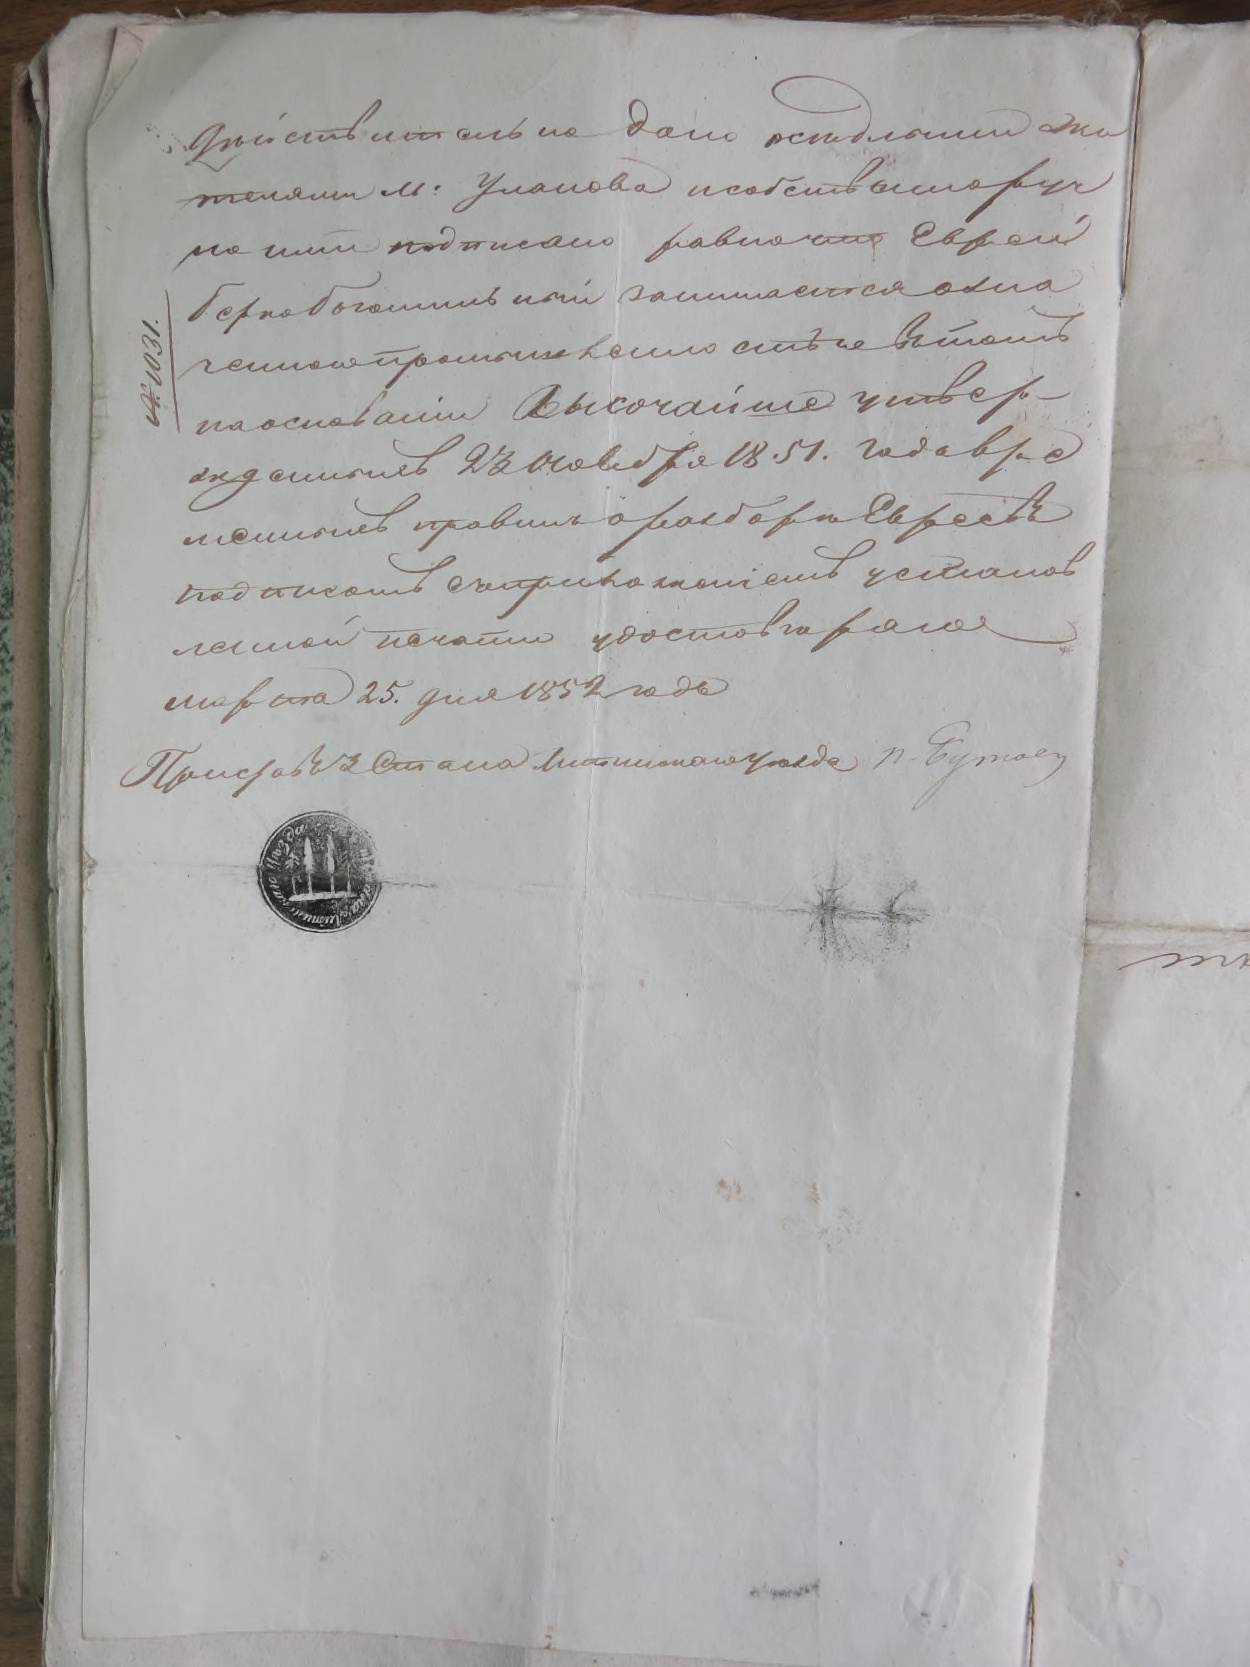 Действительно дано оседлыми жи
телями м: Уланова и собственноруч
но ими подписано равно что Еврей
Берко занимается озна
ченною промышленностью в томъ
на основании Высочайше утвер-
жденныхъ 23 Ноября 18.51. года вре
менныхъ правилъ о разборе Евреевъ
подписомъ съ приложениемъ установ
ленной печати удостоверяю
марта 25. дня 1852 года
Приставъ 2 Стана Литинского уезда П.
№ 1031.